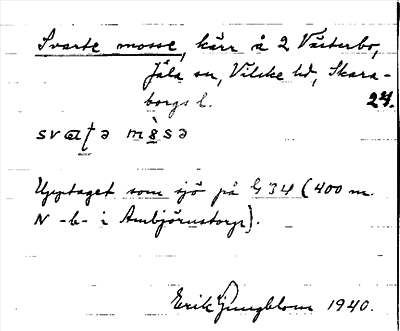 Svarte mosse, kärr å 2 Västerbo,
Jäla sn, Vilske hd, Skara-
borgs l. 24.
svatə mɵ̀sə
Upptaget som sjö på G 34 (400 m.
N -b- i Ambjörnstorp).
Erik Ljungblom 1940.